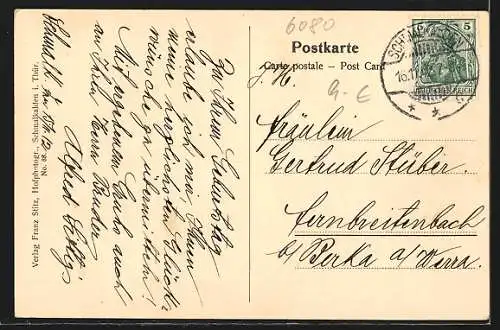 6080
Postkarte
Carte postale - Post Card
5
SCHMALKALDEN
J. H.
9.- €
Fräulein
Gertrud Stüber.
Fernbreitenbach
b/ Berka a/Werra.
Zu Ihrem Geburtstag
erlaube ich mir, Ihnen
meine herzlichsten Glück-
wünsche zu übermitteln!
Mit ergebenem Gruß auch
an Ihren Herrn Bruder
Alfred
Verlag Franz Stitz, Hofphotogr., Schmalkalden i. Thür.
No. 48.